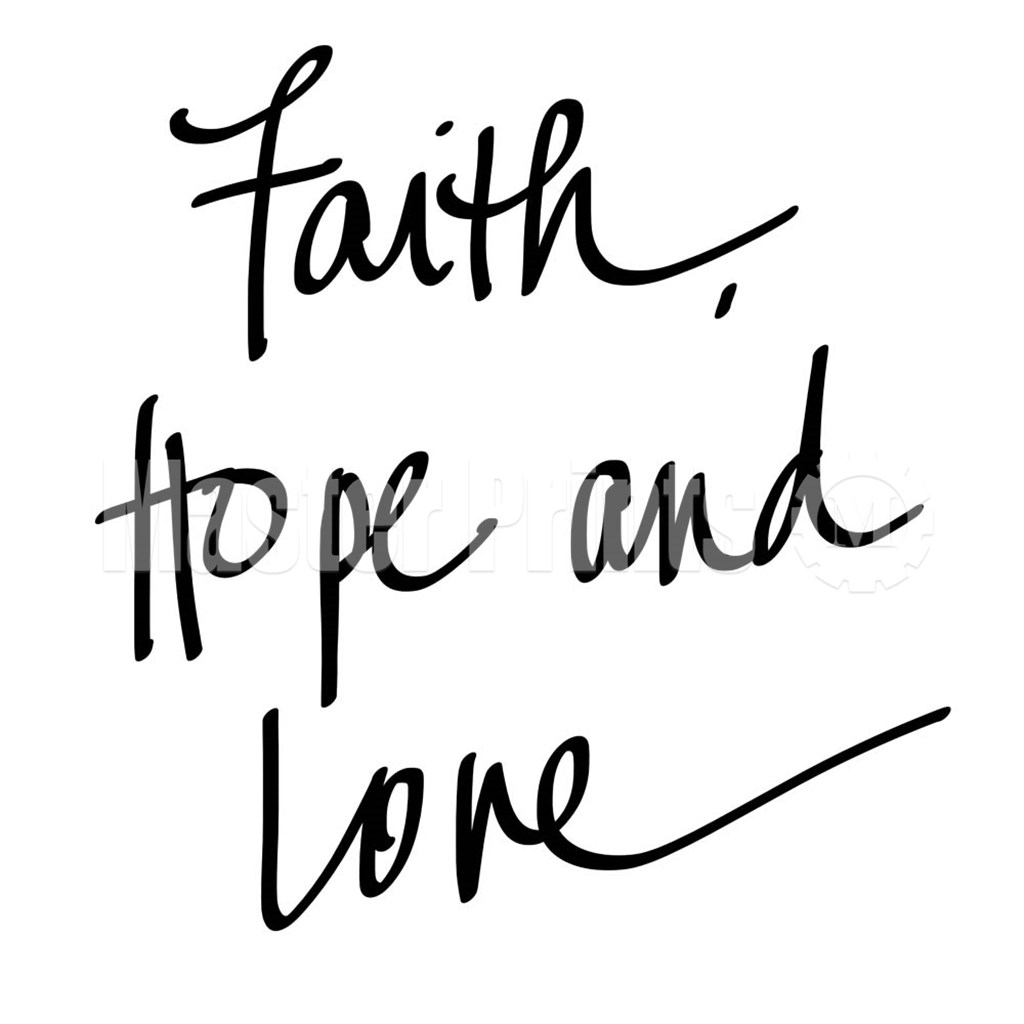 Faith,
Hope and
Love
MasterPrints